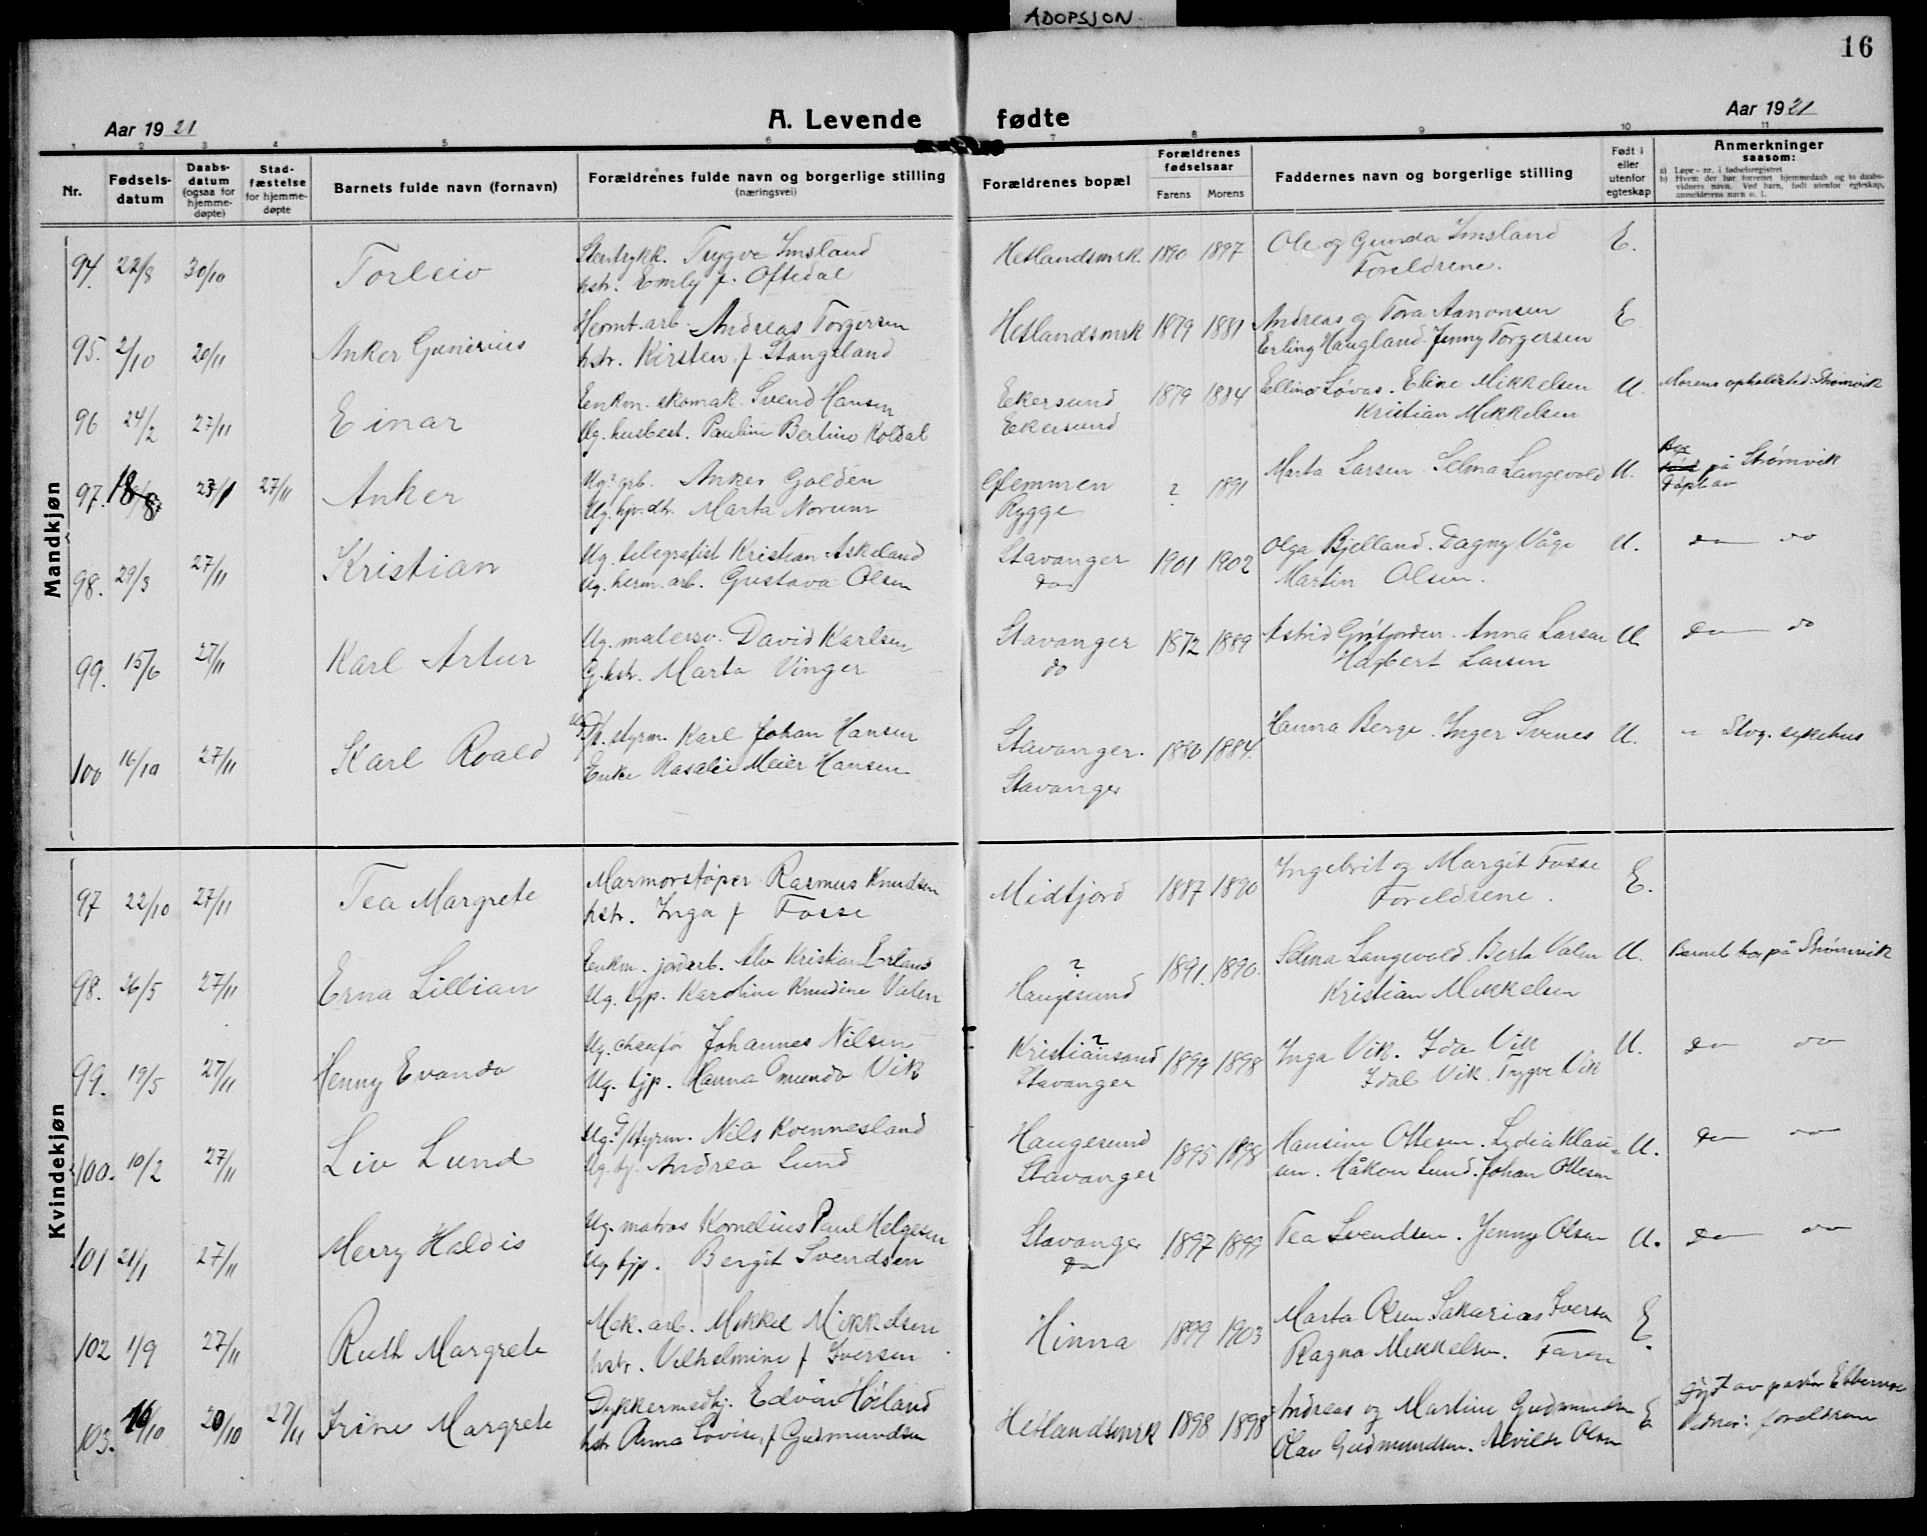 ADOPSJON
16
Aar 1921
A. Levende fødte
Aar 1921
1 2 3 4 5 6 7 8 9 10 11
Nr.
Fødsels-
datum
Daabs-
datum
(ogsaa for
hjemme-
døpte)
Stad-
fæstelse
for hjemme-
døpte
Barnets fulde navn (fornavn)
Forældrenes fulde navn og borgerlige stilling
(næringsvei)
Forældrenes bopæl
Forældrenes
fødselsaar
Farens Morens
Faddernes navn og borgerlige stilling
Født i
eller
utenfor
egteskap
Anmerkninger
saasom:
a) Løpe-nr. i fødselsregistret
b) Hvem der har forrettet hjemmedaab og to daabs-
vidners navn. Ved barn, født utenfor egteskap,
anmelderens navn o. l.
Mandkjøn
94. 22/8 30/10 Torleiv
Stentrykk. Trygve Imsland
hstr. Emly f. Oftedal
Hetlandsmrk. 1890 1897
Ole og Gunda Imsland
Foreldrene.
E.
95. 2/10 20/11 Anker Gunerius
Hermt. arb. Andreas Torgersen
hstr. Kirsten f. Stangeland
Hetlandsmrk 1879 1881
Andreas og Tora Aanonsen
Erling Haugland. Jenny Torgersen
E
96 24/2 27/11 Einar
Enkm. skomak. Svend Hansen
Ug. husbest. Pauline Bertine Koldal
Eekersund
Eekersund
1879 1884
Elline Løvas. Eline Mikkelsen
Kristian Mikkelsen
U.
Morens opholdsted: Strømvik
97. 18/8 23/1 27/11 Anker
Ug. grb. Anker Golden
Ug. hjv. dtr. Marta Norum
Glemmen
Rygge
? 1891
Marta Larsen. Selma Langevold
U.
på Strømvik
Døpt av
98. 29/3 27/11 Kristian
Ug. telegrafist Kristian Askeland
Ug. herm. arb. Gustava Olsen
Stavanger
do
1901 1902
Olga Bjelland. Dagny Våge
Martin Olsen.
U.
do do
99. 15/6 27/11 Karl Artur
Ug. malersv. David Karlsen
G. hstr. Marta Vinger
Stavanger
do
1872 1889
Astrid Anna Larsen
Hagbert Larsen
U
do do
100 16/10 27/11 Karl Roald
Ug. styrm. Karl Johan Hansen
Enke Rasalie Meier Hansen
Stavanger.
Stavanger
1880 1884.
Hanna Berge. Inger Svenes
U.
" Stvg. sykehus
Kvindekjøn
97 22/10 27/11 Tea Margrete
Marmorstøper Rasmus Knudsen
hstr. Inga f Fosse
Midtjord 1887 1890
Ingebrit og Margit Fosse
Foreldrene.
E.
98. 26/5 27/11 Erna Lillian
Enkm. jordarb. Alv Kristian Erland
Ug. tjp. Karoline Knudine Valen
?
Haugesund
1891. 1890.
Selma Langevold. Berta Valen
Kristian Mikkelsen
U.
Barnet hos på Strømvik
99. 19/5 27/11 Henny Evanda
Ug. chaufør Johannes Nilsen
Ug. tjp. Hanna Omunda Vik
Kristiansand ?
Stavanger
1899 1898
Inga Vik. Ida Vik
Idal Vik. Trygve Vik
U.
do do
100. 10/2 27/11 Liv Lund
Ug. styrm. Nils Kvennesland
Ug. tj. Andrea Lund
Haugesund
Stavanger
1895 1898
Hansine Ottesen. Lydia Klau-
sen. Håkon Lund. Johan Ottesen
U.
do do
101 21/1 27/11 Merry Haldis
Ug. matros Kornelius Paul Helgesen
Ug tjp. Bergit Svendsen
Stavanger
do
1897 1899
Tea Svendsen. Jenny Olsen
U.
do do
102 1/9 27/11 Ruth Margrete
Mek. arb. Mikkel Mikkelsen
hstr. Vilhelmine f Iversen
Hinna 1899 1903
Marta Olsen Sakarias Iversen
Ragna Mikkelsen. Faren
E.
103. 16/10 20/10 27/11 Irine Margrete
Dykkermedhj. Edvin Høiland
hstr Anna Lovise, f Gudmundsen
Hetlandsmrk 1898 1898
Andreas og Martine Gudmundsen
Olav Gudmundsen. Alvilde Olsen
E
døpt av pastor
Vidner: foreldrene